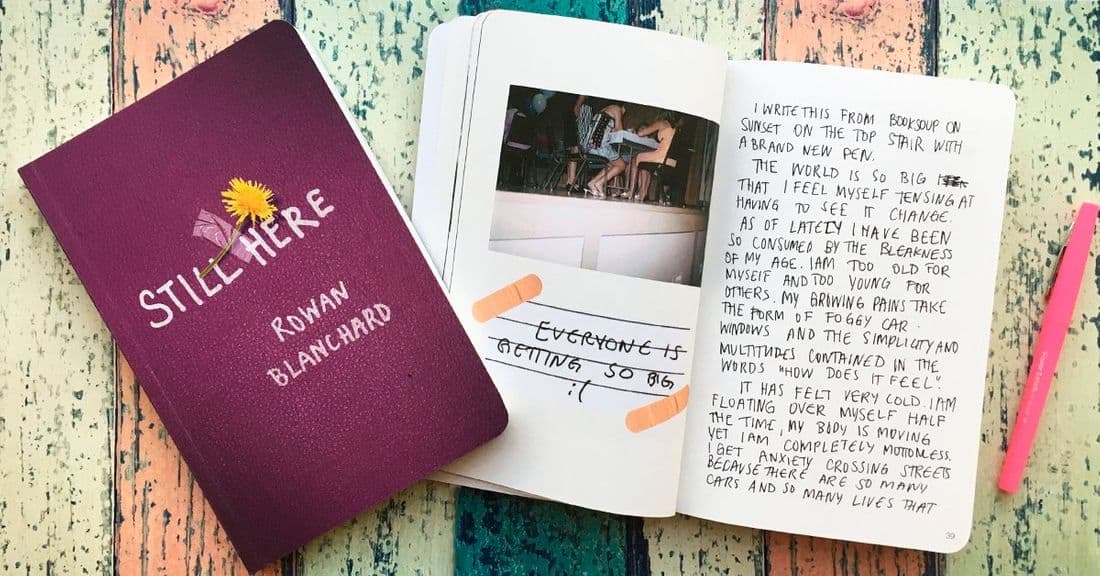 STILL HERE
ROWAN
BLANCHARD
EVERYONE IS
GETTING SO BIG
:(
I WRITE THIS FROM BOOKSOUP ON
SUNSET ON THE TOP STAIR WITH
A BRAND NEW PEN.
THE WORLD IS SO BIG
THAT I FEEL MYSELF TENSING AT
HAVING TO SEE IT CHANGE.
AS OF LATELY I HAVE BEEN
SO CONSUMED BY THE BLEAKNESS
OF MY AGE. I AM TOO OLD FOR
MYSELF AND TOO YOUNG FOR
OTHERS. MY GROWING PAINS TAKE
THE FORM OF FOGGY CAR
WINDOWS AND THE SIMPLICITY AND
MULTITUDES CONTAINED IN THE
WORDS "HOW DOES IT FEEL".
IT HAS FELT VERY COLD. I AM
FLOATING OVER MYSELF HALF
THE TIME, MY BODY IS MOVING
YET I AM COMPLETELY MOTIONLESS.
I GET ANXIETY CROSSING STREETS
BECAUSE THERE ARE SO MANY
CARS AND SO MANY LIVES THAT
39